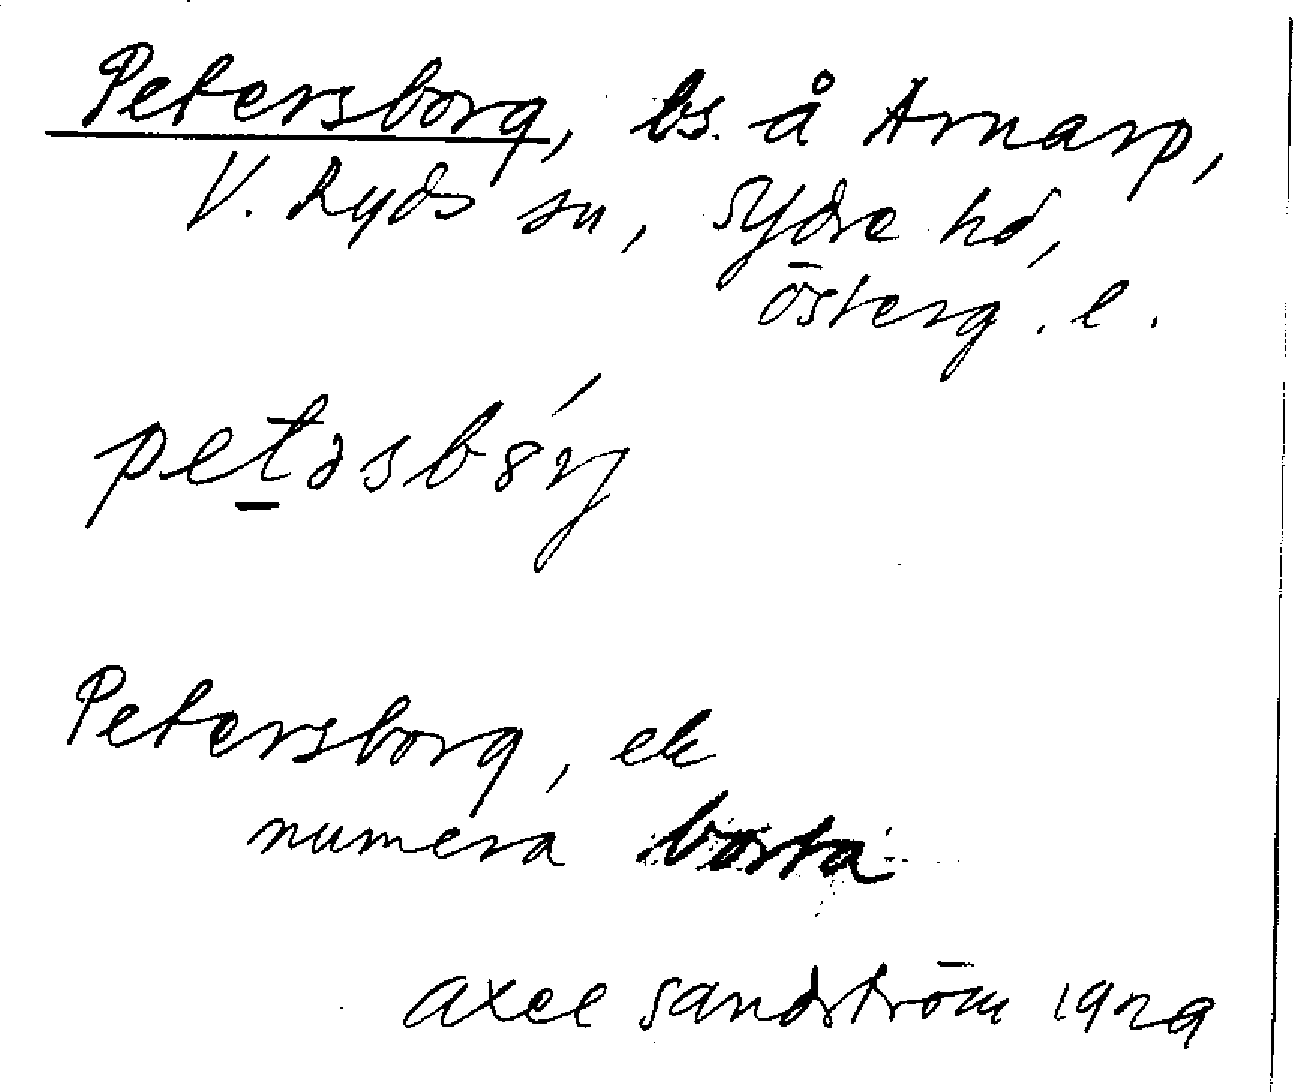 Petersborg, bs. å Arnarp,
V. Ryds sn, Ydre hd,
Österg. l.
petəsbȣ́rj
Petersborg, ek
numera borta
Axel Sandström 1929